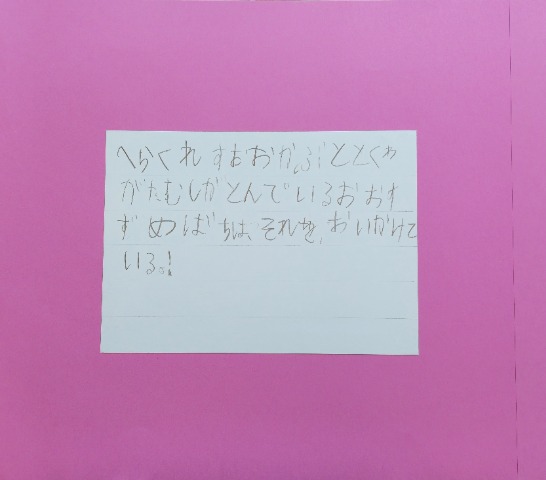 へらくれすおおかぶととくわ
がたむしがとんでいるおおす
ずめばちは、それを、おいかけて
いる。!